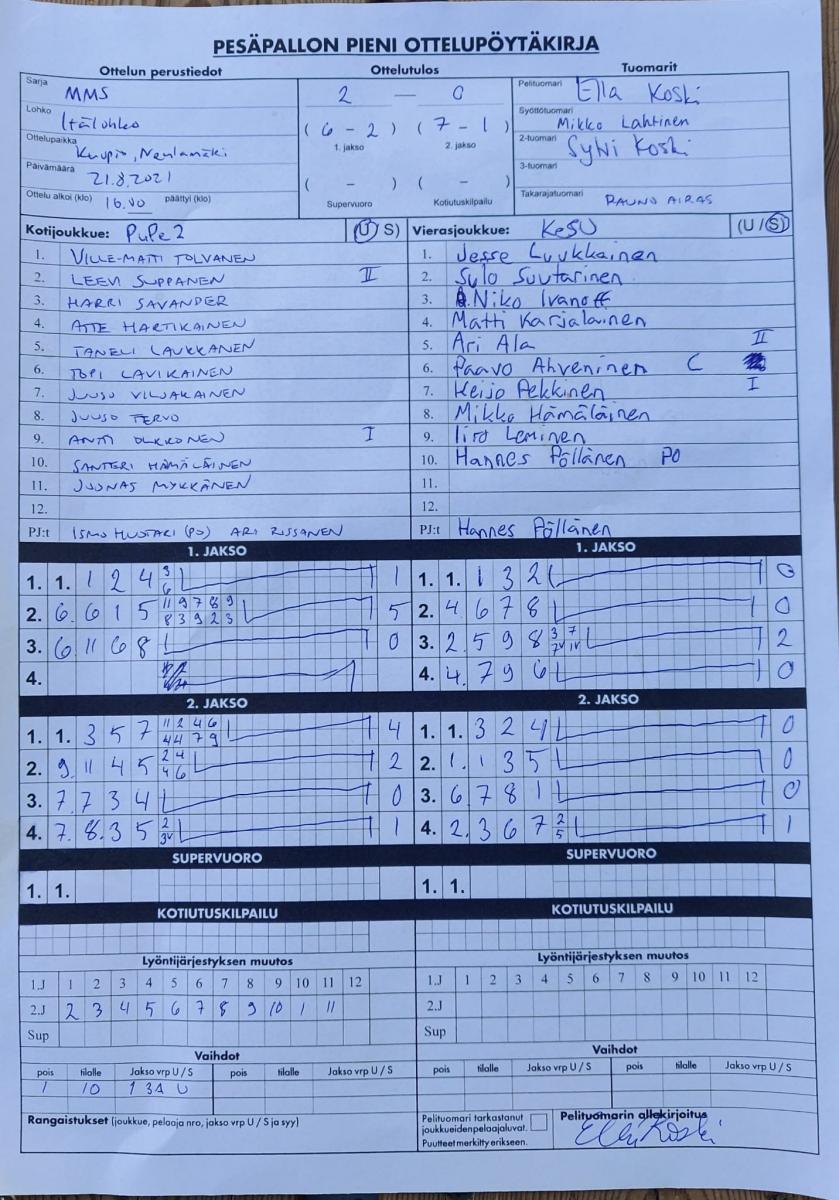 PESÄPALLON PIENI OTTELUPÖYTÄKIRJA
Ottelun perustiedot Ottelutulos Tuomarit
Sarja MMS
Lohko Itälohko
Ottelupaikka Kuopio, Neulamäki
Päivämäärä 21.8.2021
Ottelu alkoi (klo) 16.00 päättyi (klo)
2 — 0
( 6 - 2 ) ( 7 - 1 )
1. jakso 2. jakso
( - ) ( - )
Supervuoro Kotiutuskilpailu
Pelituomari Ella Koski
Syöttötuomari Mikko Lahtinen
2-tuomari Sylvi Koski
3-tuomari
Takarajatuomari RAUNO AIRAS
Kotijoukkue: PuPe 2 (U S)
1. VILLE-MATTI TOLVANEN
2. LEEVI SUPPANEN II
3. HARRI SAVANDER
4. ATTE HARTIKAINEN
5. TANELI LAUKKANEN
6. TOPI LAVIKAINEN
7. JUUSO VILJAKAINEN
8. JUUSO TERVO
9. ANTTI OLKKONEN I
10. SANTERI HÄMÄLÄINEN
11. JOONAS MYKKÄNEN
12.
PJ:t ISMO HUOTARI (PO) ARI RISSANEN
Vierasjoukkue: KeSU (U / S)
1. Jesse Luukkainen
2. Sulo Suutarinen
3. Niko Ivanoff
4. Matti Karjalainen
5. Ari Ala II
6. Paavo Ahveninen C
7. Keijo Pekkinen I
8. Mikko Hämäläinen
9. Iiro Leminen
10. Hannes Pöllänen PO
11.
12.
PJ:t Hannes Pöllänen
1. JAKSO
1. 1. 1 2 4 3 6 1
2. 6. 6 1 5 11 9 7 8 9 8 3 9 2 3 5
3. 6 11 6 8 0
4.
1. JAKSO
1. 1. 1 3 2 0
2. 4 6 7 8 0
3. 2. 5 9 8 3 7 7V 1V 2
4. 4. 7 9 6 0
2. JAKSO
1. 1. 3 5 7 11 2 4 6 4 4 7 9 4
2. 9. 11 4 5 2 4 4 6 2
3. 7. 7 3 4 0
4. 7. 8. 3 5 2 3V 1
2. JAKSO
1. 1. 3 2 4 0
2. 1. 1 3 5 0
3. 6 7 8 1 0
4. 2. 3 6 7 2 5 1
SUPERVUORO SUPERVUORO
1. 1. 1. 1.
KOTIUTUSKILPAILU KOTIUTUSKILPAILU
Lyöntijärjestyksen muutos
1.J 1 2 3 4 5 6 7 8 9 10 11 12
2.J 2 3 4 5 6 7 8 9 10 1 11
Sup
Lyöntijärjestyksen muutos
1.J 1 2 3 4 5 6 7 8 9 10 11 12
2.J
Sup
Vaihdot
pois tilalle Jakso vrp U / S pois tilalle Jakso vrp U / S
1 10 1 3A U
Vaihdot
pois tilalle Jakso vrp U / S pois tilalle Jakso vrp U / S
Rangaistukset (joukkue, pelaaja nro, jakso vrp U / S ja syy)
Pelituomari tarkastanut
joukkueiden pelaajaluvat.
Puutteet merkitty erikseen.
Pelituomarin allekirjoitus
Ella Koski